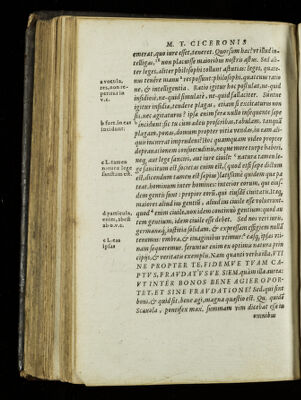 M. T. CICERONIS
emerat, quo iure esset, teneret. Quorsum hæc? vt illud in-
telligas, non placuisse maioribus nostris astutos. Sed ali-
ter leges, aliter philosophi tollunt astutias: leges, quate-
nus tenere manu res possunt: philosophi, quatenus ratio
ne, & intelligentia. Ratio igitur hoc postulat, ne quid
insidiosè, ne quid simulatè, ne quid fallaciter. Suntne
igitur insidiæ, tendere plagas, etiam si excitaturus non
sis, nec agitaturus? ipsæ enim feræ nullo insequente sæpe
incidunt: sic tu cùm ædes proscribas, tabulam, tanquã
plagam, ponas, domum propter vitia vendas, in eam ali-
quis incurrat imprudens? Hoc quamquam video propter
deprauationem consuetudinis, neque more turpe haberi,
neque aut lege sanciri, aut iure ciuili: tamen naturæ le-
ge sancitum est. societas enim est, (quod etsi sæpe dictum
est, dicendum tamen est sæpius) latissimè quidem quæ pa-
teat, hominum inter homines: interior eorum, qui eius-
dem gentis sunt: propior eorum, qui eiusdẽ ciuitatis. itaq́;
maiores aliud ius gentium, aliud ius ciuile esse voluerunt:
quod enim ciuile, non idem continuò gentium: quod au
tem gentium, idem ciuile esse debet. Sed nos veri iuris,
germanæq́; iustitiæ solidam, & expressam effigiem nullã
tenemus: vmbra, & imaginibus vtimur. eas q́; ipsas vti-
nam sequeremur. feruntur enim ex optimis naturæ prin
cipijs, & veritatis exemplis. Nam quanti verba illa, VTI
NE PROPTER TE, FIDEMVE TVAM CAP-
TVS, FRAVDATVSVE SIEM. quàm illa aurea:
VT INTER BONOS BENE AGIER OPOR-
TET, ET SINE FRAVDATIONE! Sed, qui sint
boni, & quid sit bene agi, magna quæstio est. Q. quidẽ
Scæuola, pontifex max. summam vim dicebat esse in
omnibus